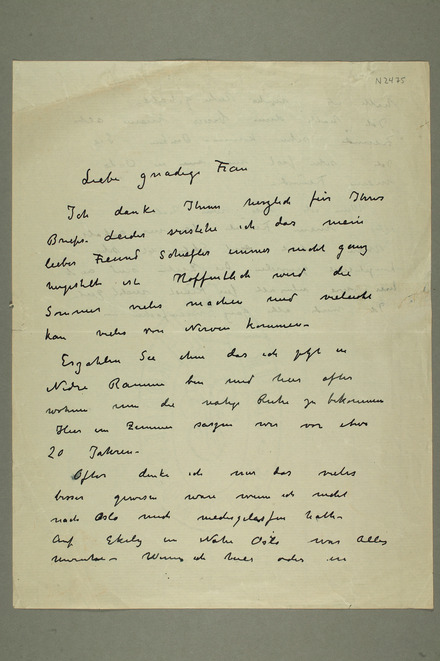 N2475
Liebe gnädige Frau
Ich danke Ihnen herzlich für Ihres
Briefs. Leider verstehe ich das mein
lieber Freund Schiefler immer nicht ganz
ist Hoffentlich wird die
Sommer vieles machen und vieleicht
kan vieles von Nerven kommen–
Erzahlen Sie ihm das ich jetzt in
Nedre Ramme bin und hier ofter
wohne um die notige Ruhe zu bekommen
Hier im Zimmer wir vor etwa
20 Jahren–
Ofter denke ich nur das vieles
besser gewesen ware wenn ich nicht
nach Oslo mich niedergelassen hatte
Auf Ekely in Nahe Oslo war Alles
Wenn ich hier oder in